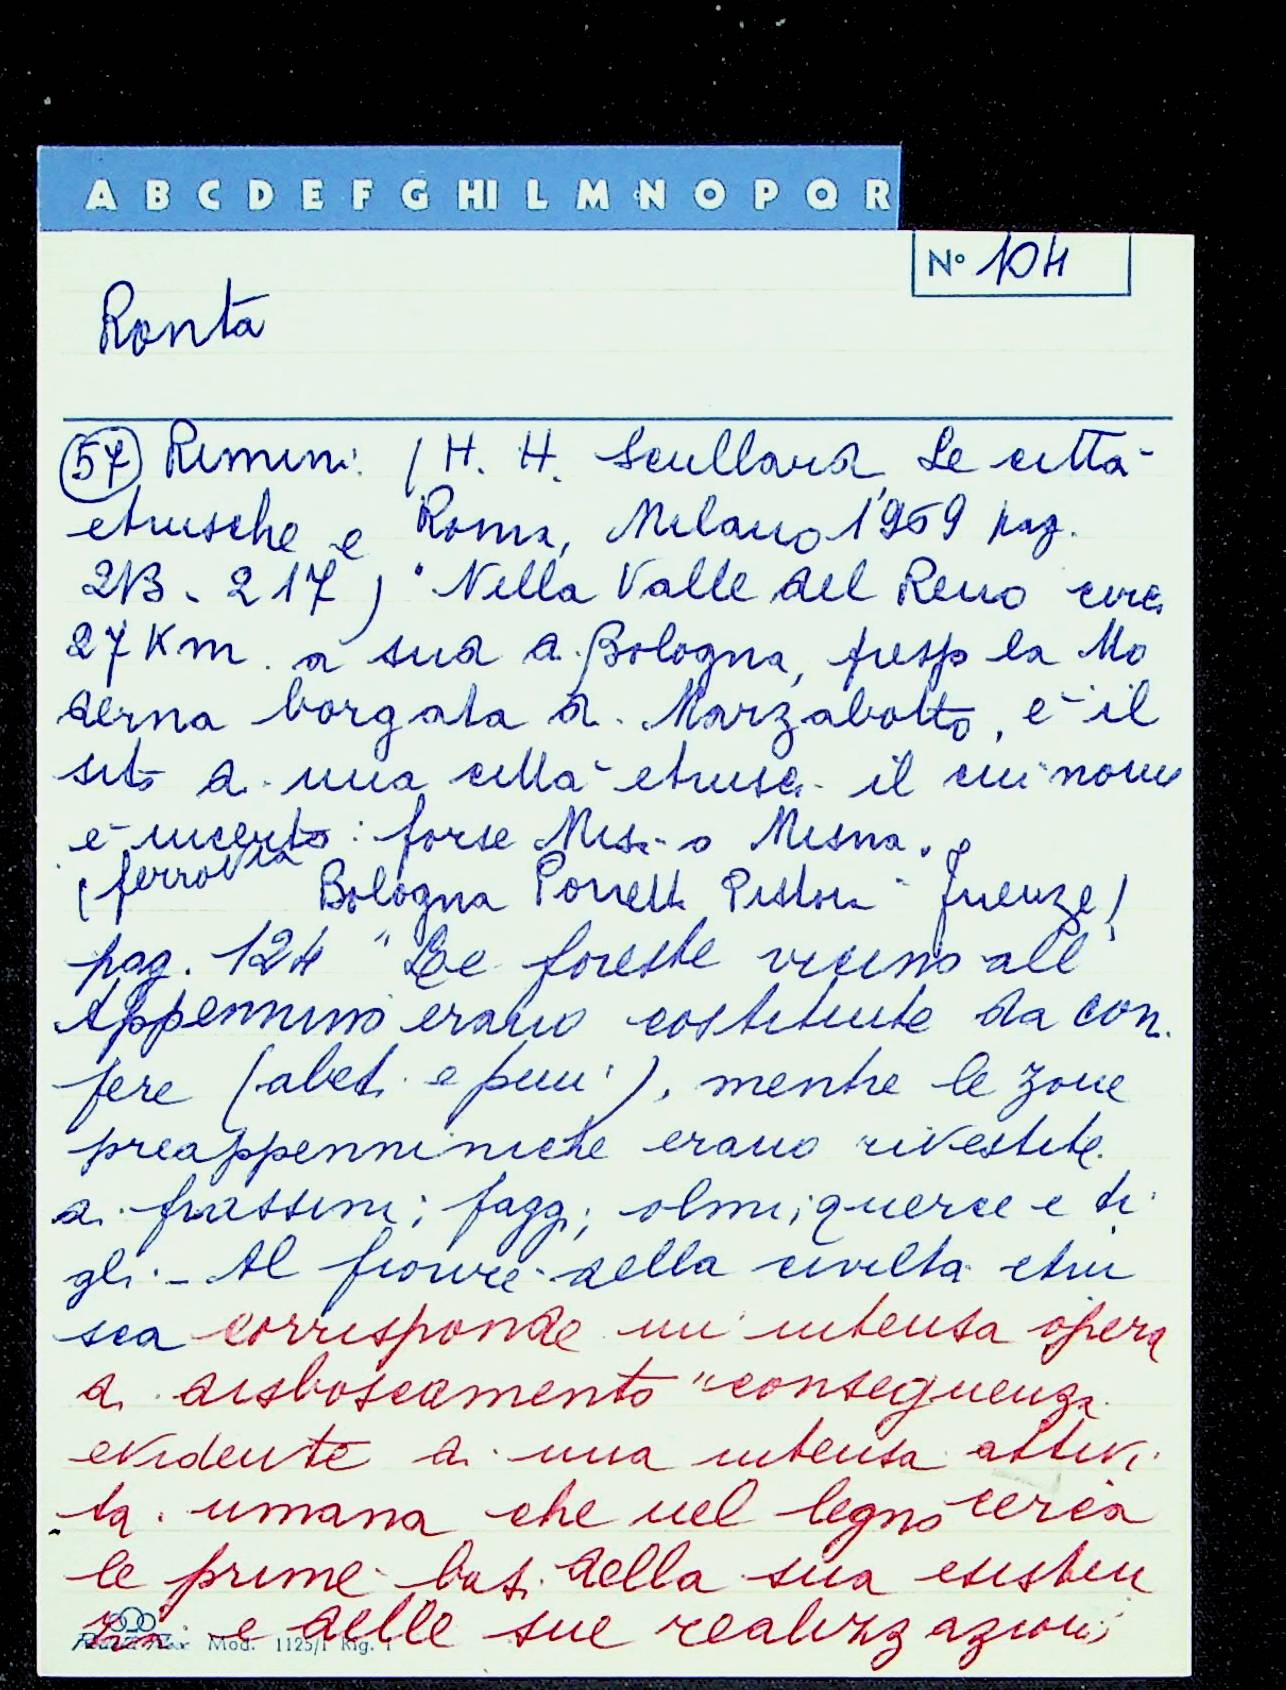 A B C D E F G HI L M N O P Q R
N° 104
Ronta
57 Rimini (H. H. Scullard, Le città
etrusche e Roma, Milano 1969 pag.
213 - 217) "Nella Valle del Reno circa
27 Km. a sud di Bologna, presso la Mo
derna borgata di Marzabotto, è il
sito di una città etrusca il cui nome
è incerto: forse Misa o Misna.
(ferrovia Bologna Porretta Pistoia Firenze)
pag. 124 "Le foreste vicino all'
Appennino erano costituite da coni
fere (abeti e pini), mentre le zone
preappenniniche erano rivestite
di frassini; faggi; olmi; querce e ti
gli. - Al fiorire della civiltà etru
sca corrisponde un'intensa opera
di disboscamento "conseguenza
evidente di una intensa attivi
tà umana che nel legno cerca
le prime basi della sua esisten
za e delle sue realizzazioni
Mod. 1125/1 Rig. 1